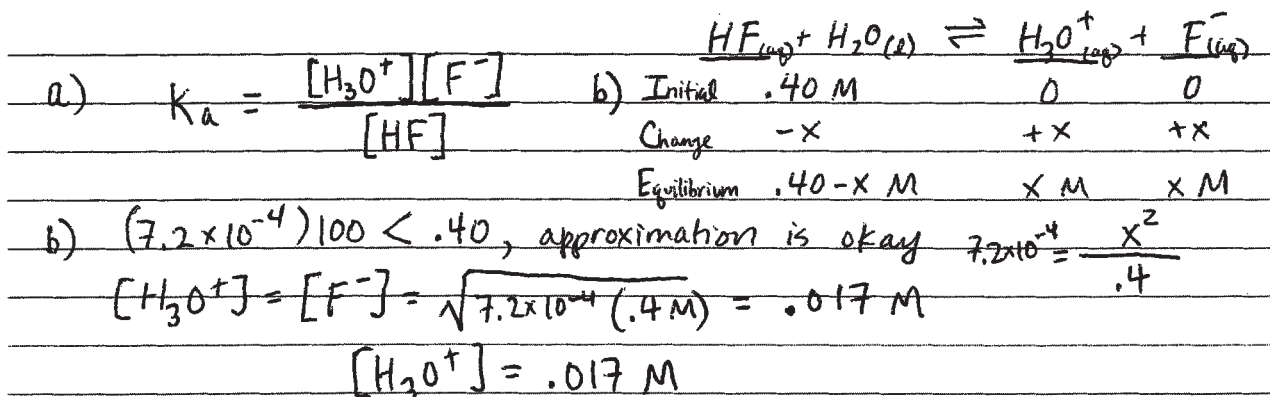 HF(aq) + H₂O(l) ⇌ H₃O⁺(aq) + F⁻(aq)
a) Ka = [H₃O⁺][F⁻] / [HF]
b) Initial .40 M 0 0
Change -x +x +x
Equilibrium .40-x M x M x M
b) (7.2×10⁻⁴)100 < .40, approximation is okay 7.2×10⁻⁴ = x² / .4
[H₃O⁺] = [F⁻] = √7.2×10⁻⁴ (.4 M) = .017 M
[H₃O⁺] = .017 M